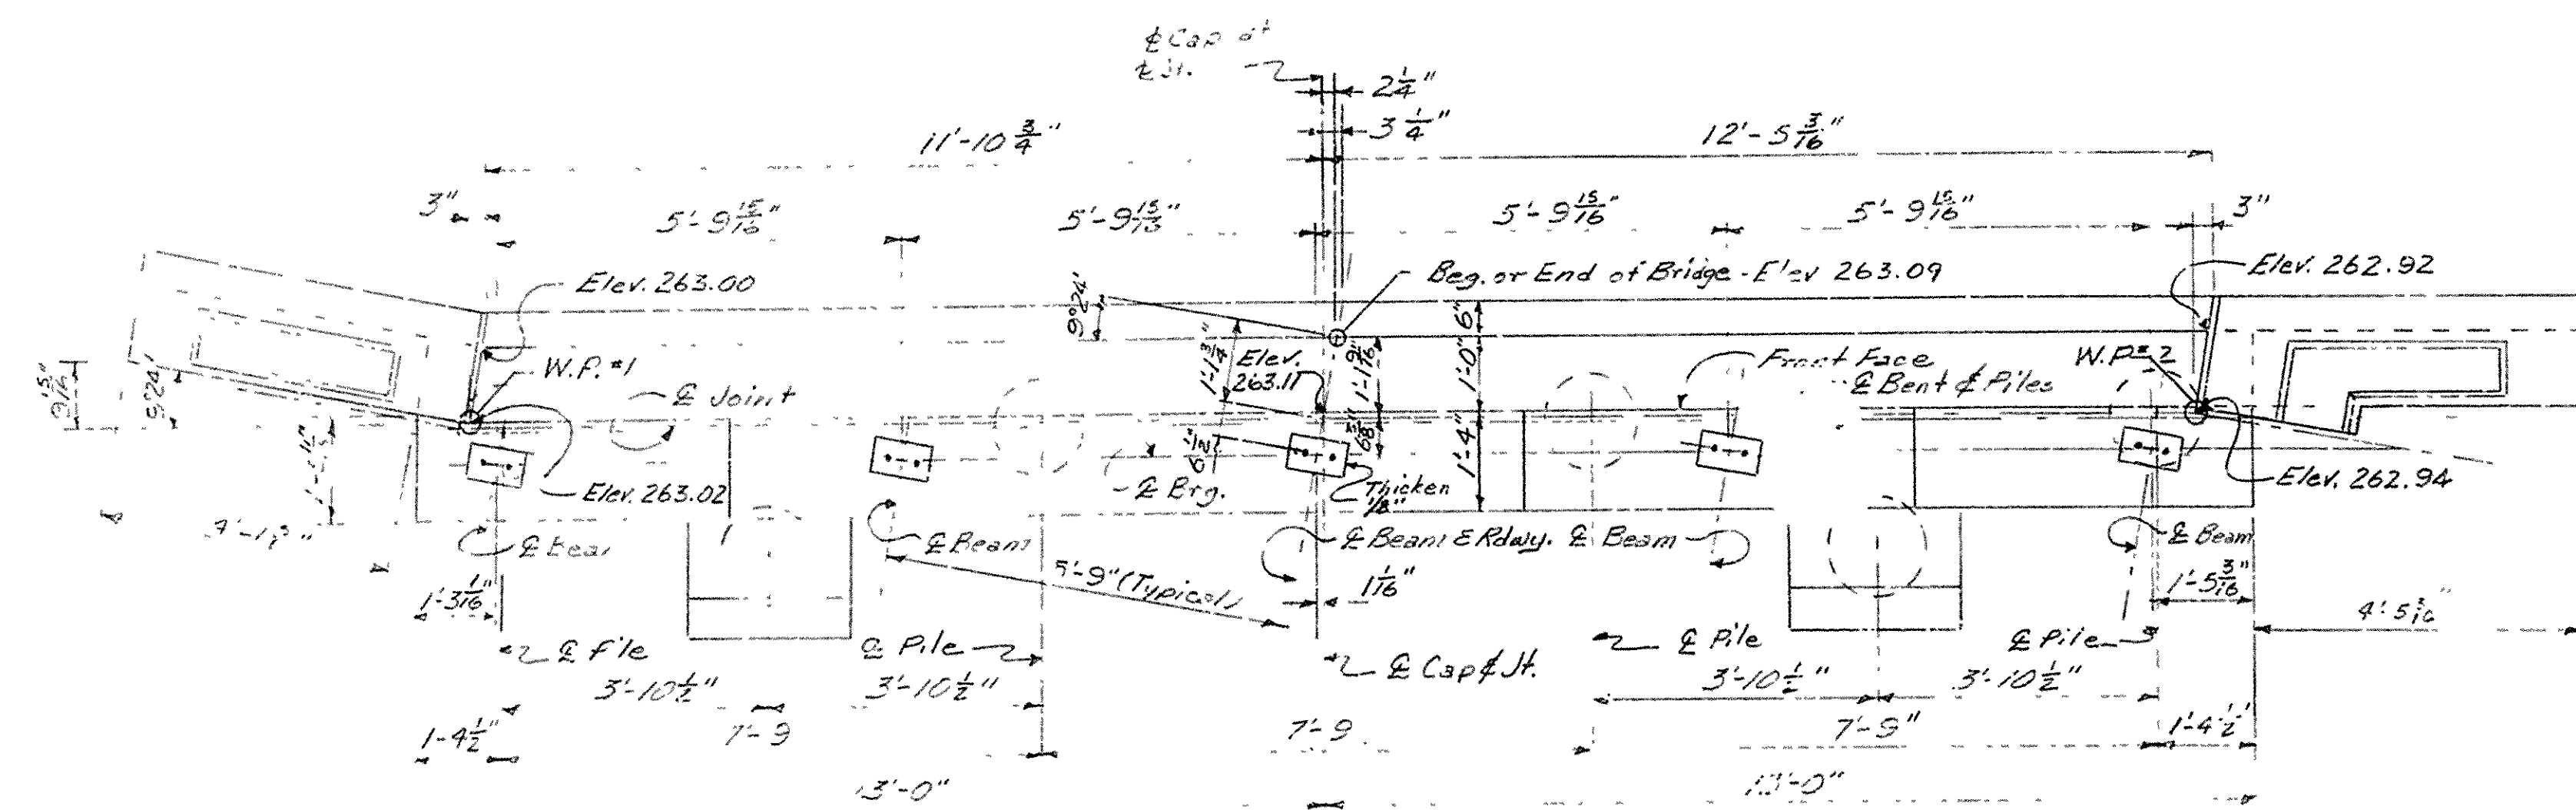 ℄ Cap at
℄ Jt.
2 1/4"
3 1/4"
11'-10 3/4"
12'-5 3/16"
3"
5'-9 15/16"
5'-9 15/16"
5'-9 15/16"
5'-9 15/16"
3"
Elev. 263.00
Beg. or End of Bridge - Elev 263.09
Elev. 262.92
9°24'
6"
1'-1 3/4"
Elev.
263.11
1'-1 9/16"
1'-0"
Front Face
℄ Bent & Piles
W.P. #1
W.P. #2
9 15/16"
9°24'
℄ Joint
6 1/2"
1'-4"
℄ Brg.
Thicken
1/8"
Elev. 263.02
Elev. 262.94
℄ Beam
℄ Beam & Rdwy.
℄ Beam
℄ Beam
5'-9" (Typical)
1'-3 1/16"
1 1/16"
1'-5 3/16"
4'-5 3/16"
℄ Pile
℄ Pile
℄ Cap & Jt.
℄ Pile
℄ Pile
3'-10 1/2"
3'-10 1/2"
3'-10 1/2"
3'-10 1/2"
1-4 1/2"
7'-9
7'-9
7'-9"
1'-4 1/2"
13'-0"
13'-0"